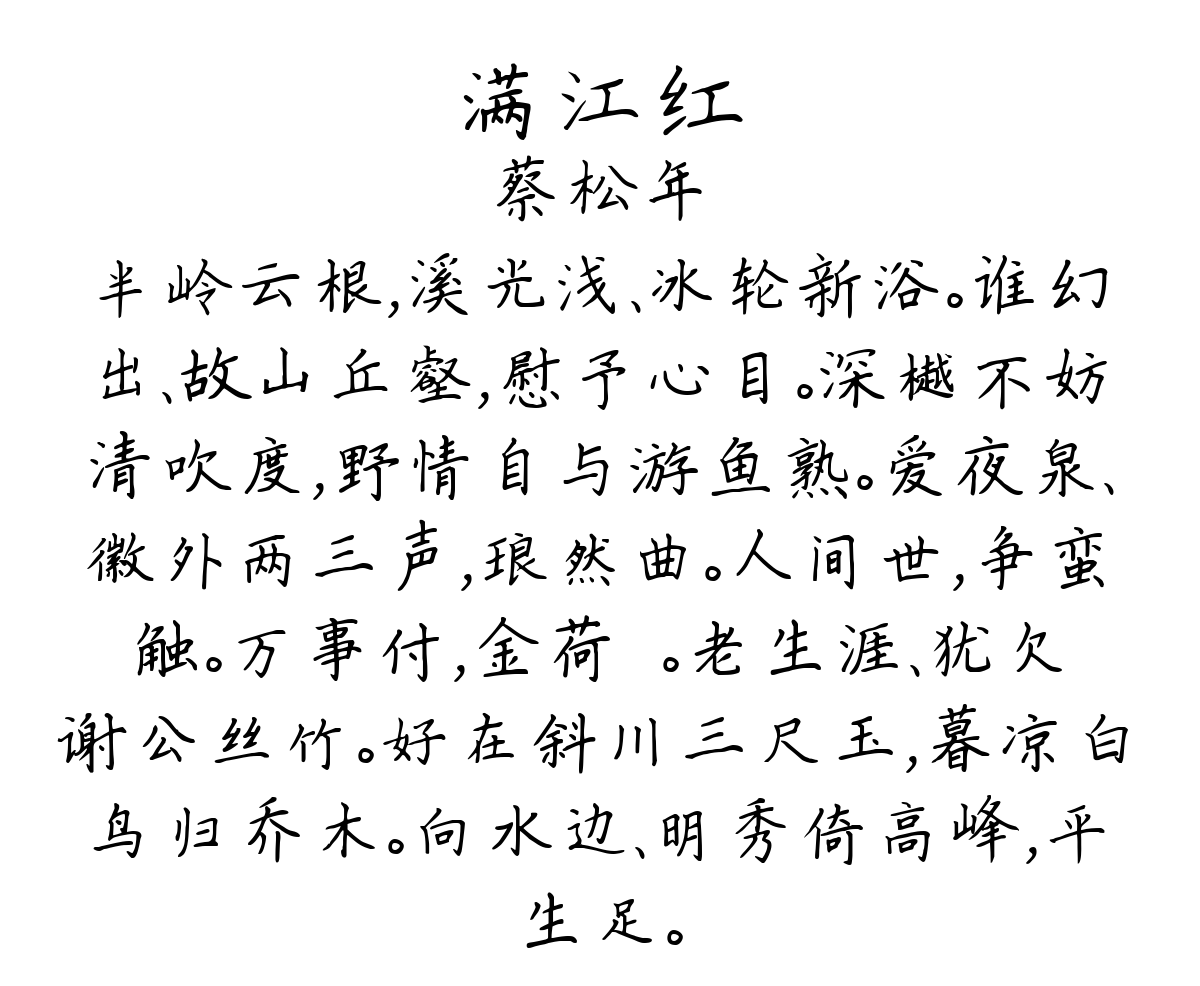 满江红
蔡松年
半岭云根,溪光浅、冰轮新浴。谁幻
出、故山丘壑,慰予心目。深樾不妨
清吹度,野情自与游鱼熟。爱夜泉、
徽外两三声,琅然曲。人间世,争蛮
触。万事付,金荷 。老生涯、犹欠
谢公丝竹。好在斜川三尺玉,暮凉白
鸟归乔木。向水边、明秀倚高峰,平
生足。